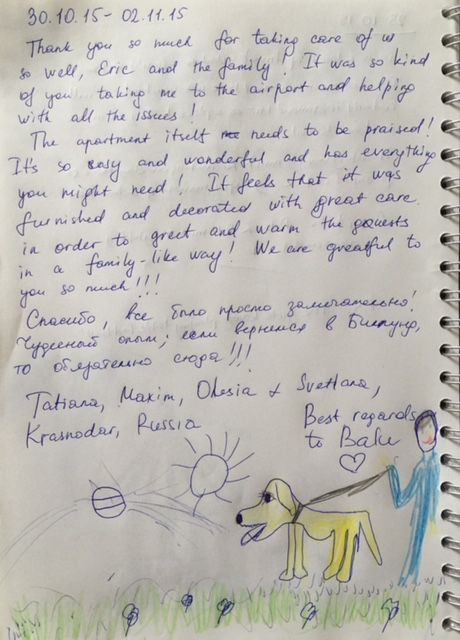 30.10.15 - 02.11.15
Thank you so much for taking care of us
so well, Eric and the family! It was so kind
of you taking me to the airport and helping
with all the issues!
The apartment itself needs to be praised!
It's so easy and wonderful and has everything
you might need! It feels that it was
furnished and decorated with great care
in order to greet and warm the guests
in a family-like way! We are greatful to
you so much!!!
Спасибо, все было просто замечательно!
Чудесный опыт; если вернемся в
то обязательно сюда!!!
Tatiana, Maxim, Olesia & Svetlana,
Krasnodar, Russia
Best regards
to Balu